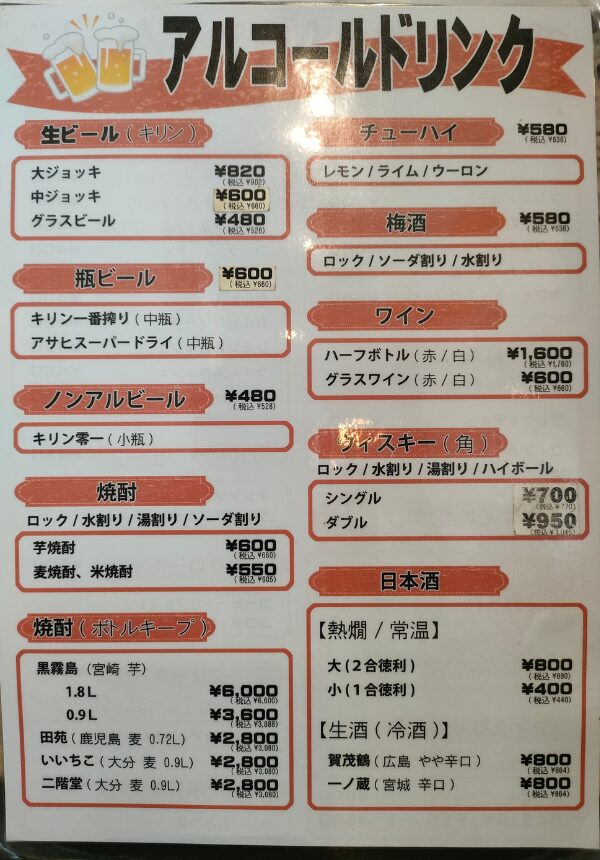 アルコールドリンク
生ビール（キリン）
大ジョッキ ¥820
（税込 ¥902）
中ジョッキ ¥600
（税込 ¥660）
グラスビール ¥480
（税込 ¥528）
瓶ビール ¥600
（税込 ¥660）
キリン一番搾り（中瓶）
アサヒスーパードライ（中瓶）
ノンアルビール ¥480
（税込 ¥528）
キリン零一（小瓶）
焼酎
ロック / 水割り / 湯割り / ソーダ割り
芋焼酎 ¥600
（税込 ¥660）
麦焼酎、米焼酎 ¥550
（税込 ¥605）
焼酎（ボトルキープ）
黒霧島（宮崎 芋）
1.8L ¥6,000
（税込 ¥6,600）
0.9L ¥3,600
田苑（鹿児島 麦 0.72L） ¥2,800
（税込 ¥3,080）
いいちこ（大分 麦 0.9L） ¥2,800
（税込 ¥3,080）
二階堂（大分 麦 0.9L） ¥2,800
（税込 ¥3,080）
チューハイ ¥580
（税込 ¥638）
レモン / ライム / ウーロン
梅酒 ¥580
（税込 ¥638）
ロック / ソーダ割り / 水割り
ワイン
ハーフボトル（赤 / 白） ¥1,600
（税込 ¥1,760）
グラスワイン（赤 / 白） ¥600
（税込 ¥660）
ウィスキー（角）
ロック / 水割り / 湯割り / ハイボール
シングル ¥700
（税込 ¥770）
ダブル ¥950
（税込 ¥1,045）
日本酒
【熱燗 / 常温】
大（2合徳利） ¥800
（税込 ¥880）
小（1合徳利） ¥400
（税込 ¥440）
【生酒（冷酒）】
賀茂鶴（広島 やや辛口） ¥800
（税込 ¥864）
一ノ蔵（宮城 辛口） ¥800
（税込 ¥864）